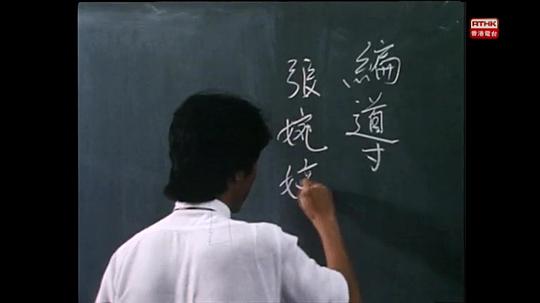 RTHK
香港電台
編導
張婉婷